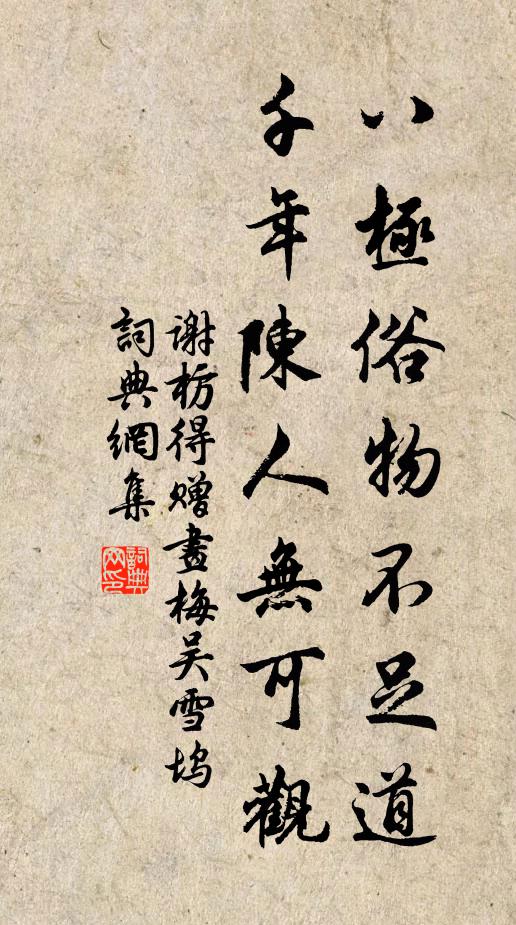 八極俗物不足道
千年陳人無可觀
谢枋得赠畫梅吴雪塢
詞典網集
詞典網印